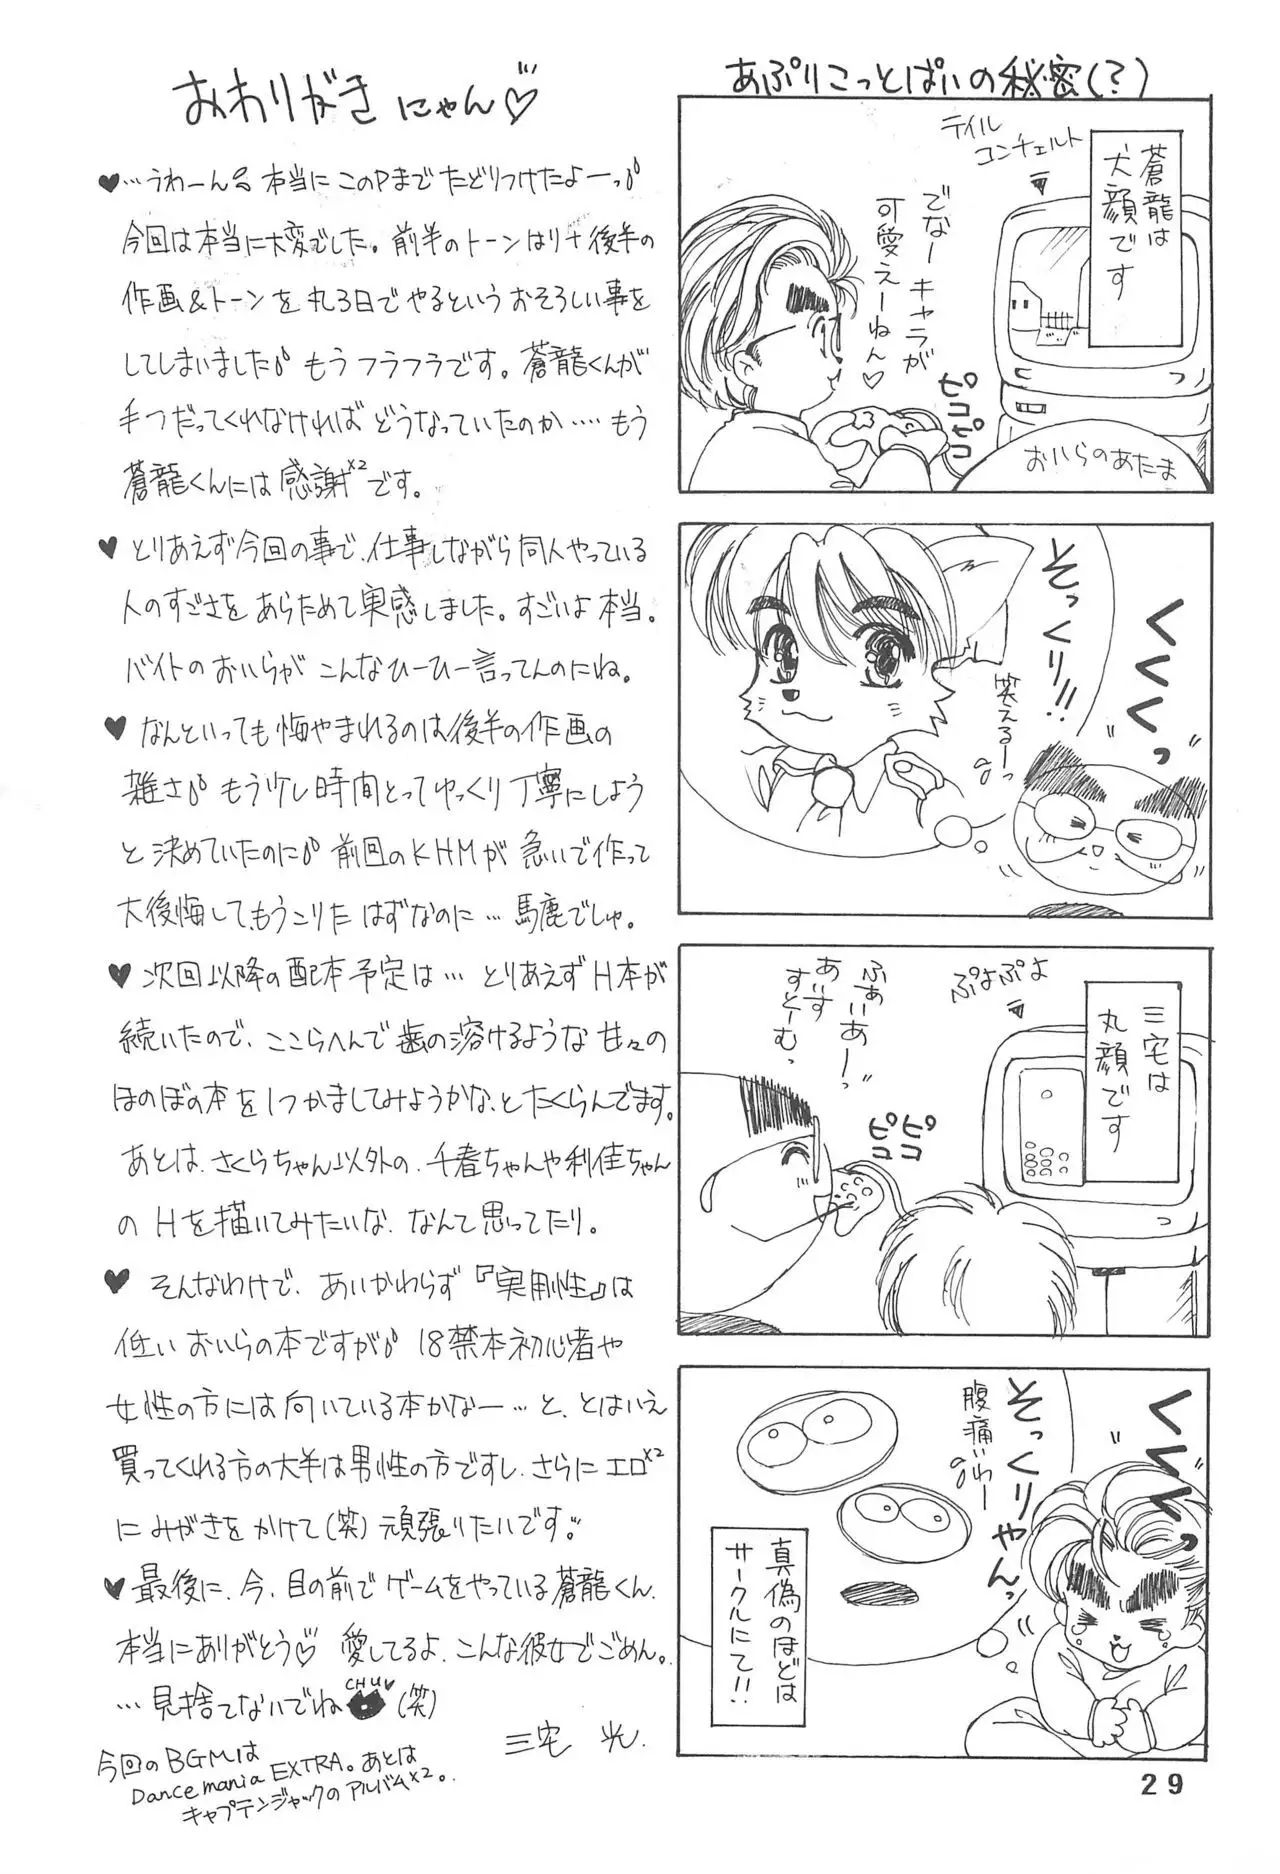 おわりがき にゃん♡
♥…うわーん 本当にこのPまでたどりつけたよーっ
今回は本当に大変でした。前半のトーンはり+後半の
作画&トーンを丸3日でやるというおそろしい事を
してしまいました もうフラフラです。蒼龍くんが
手つだってくれなければどうなっていたのか‥‥もう
蒼龍くんには感謝×2です。
♥とりあえず今回の事で、仕事しながら同人やっている
人のすごさをあらためて実感しました。すごいよ本当。
バイトのおいらがこんなひーひー言ってんのにね。
♥なんといっても悔やまれるのは後半の作画の
雑さ もう少し時間とってゆっくり丁寧にしよう
と決めていたのに 前回のKHMが急いで作って
大後悔して、もうこりたはずなのに…馬鹿でしゅ。
♥次回以降の配本予定は…とりあえずH本が
続いたので、ここらへんで歯の溶けるような甘々の
ほのぼの本を1つかましてみようかな、とたくらんでます。
あとは、さくらちゃん以外の、千春ちゃんや利佳ちゃん
のHを描いてみたいな、なんて思ってたり。
♥そんなわけで、あいかわらず『実用性』は
低いおいらの本ですが 18禁本初心者や
女性の方には向いている本かなー…と、とはいえ
買ってくれる方の大半は男性の方ですし、さらにエロ×2
にみがきをかけて(笑)頑張りたいです。
♥最後に、今、目の前でゲームをやっている蒼龍くん、
本当にありがとう♡ 愛してるよ、こんな彼女でごめん。
…見捨てないでね CHU♥ (笑)
三宅 光.
今回のBGMは
Dance mania EXTRA。あとは
キャプテンジャックのアルバム×2。
あぷりこっとぱいの秘密(?)
蒼龍は
犬顔です
テイル
コンチェルト
でなーキャラが
可愛えーねん♡
ピコピコ
おいらのあたま
くくくっ
そっくり!!
笑えるーっ
三宅は
丸顔です
ぷよぷよ
ふぁいあーっ
あいす
すとーむっ
ピコ
ピコ
くくくっ
そっくりやんっ
腹痛いわー
真偽のほどは
サークルにて!!
29